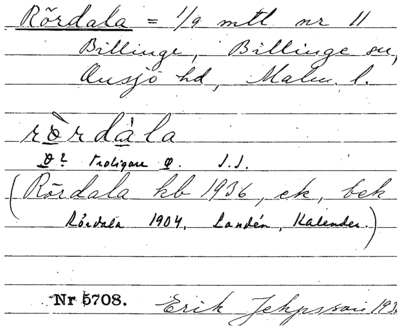 Rördala = 1/9 mtl nr 11
Billinge, Billinge sn,
Onsjö hd, Malm. l.
rò̤rdàla
o̤? troligare ø. J.J.
(Rördala kb 1936, ek, bek
Rördala 1904, Landén, Kalender.)
Nr 5708.
Erik Jeppsson 193